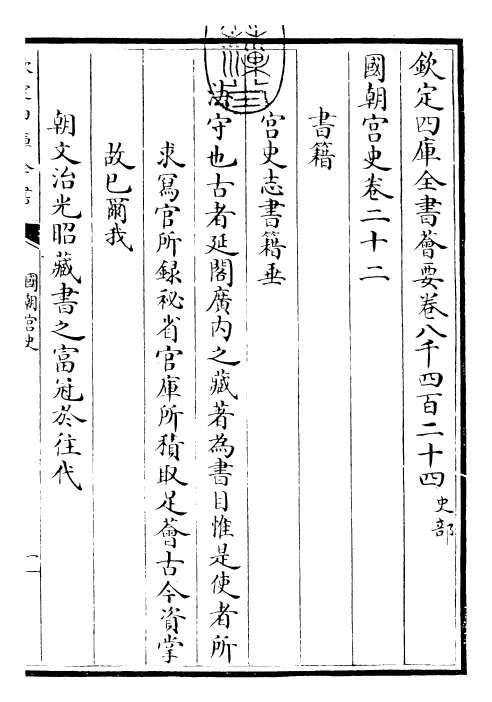 欽定四庫全書薈要卷八千四百二十四 史部
國朝宮史卷二十二
書籍
宮史志書籍垂
法守也古者延閣廣内之藏著為書目惟是使者所
求冩官所錄祕省官庫所積取足薈古今資掌
故已爾我
朝文治光昭藏書之富冠於往代
欽定四庫全書
國朝宮史
一